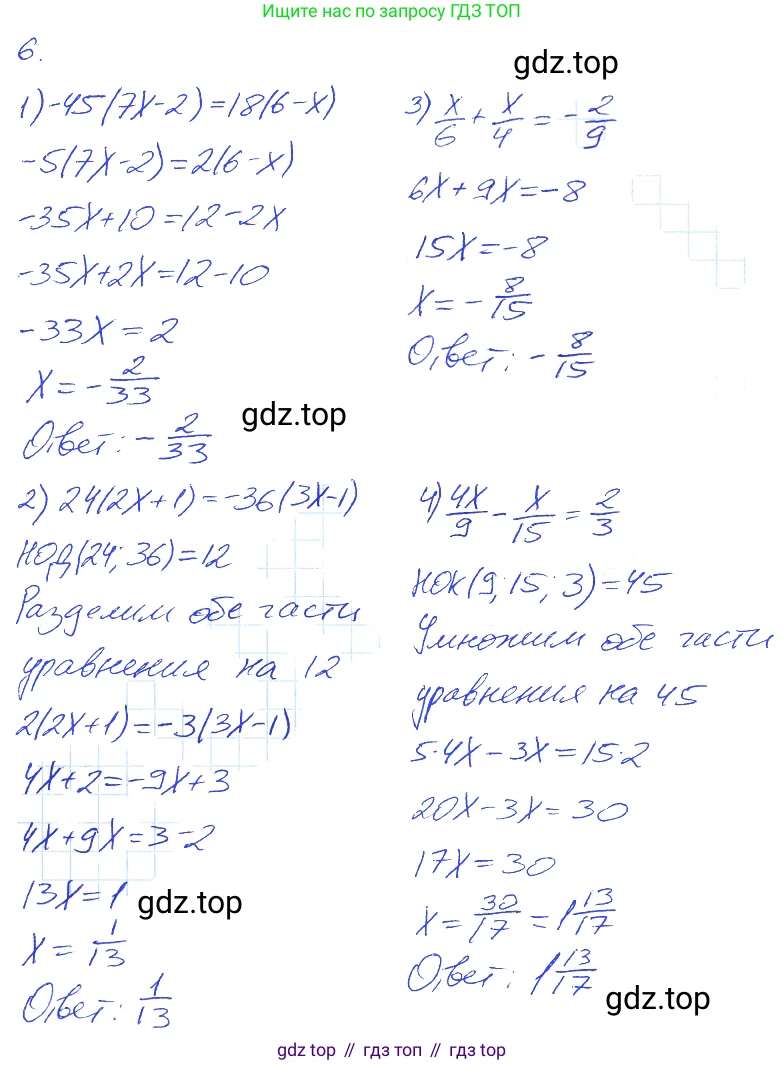 Ищите нас по запросу ГДЗ ТОП
6.
gdz.top
1) -45(7x-2)=18(6-x)
-5(7x-2)=2(6-x)
-35x+10=12-2x
-35x+2x=12-10
-33x=2
x=-2/33
gdz.top
Ответ: -2/33
2) 24(2x+1)=-36(3x-1)
НОД(24; 36)=12
Разделим обе части
уравнения на 12
2(2x+1)=-3(3x-1)
4x+2=-9x+3
4x+9x=3-2
13x=1
gdz.top
x=1/13
Ответ: 1/13
3) x/6+x/4=-2/9
6x+9x=-8
15x=-8
x=-8/15
Ответ: -8/15
4) 4x/9-x/15=2/3
НОК(9; 15; 3)=45
Умножим обе части
уравнения на 45
5·4x-3x=15·2
20x-3x=30
17x=30
x=30/17=1 13/17
Ответ: 1 13/17
gdz.top
gdz top // гдз топ // gdz top